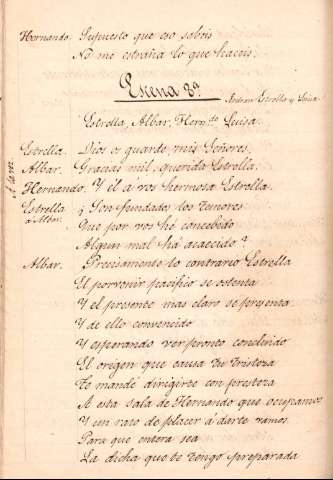 Hernando. Supuesto que eso sabeis
No me estraña lo que haceis.
Escena 8ª
Entran Estrella y Luisa
Estrella, Albar, Hernᵈᵒ Luisa.
Estrella. Dios os guarde mis Señores,
Albar. Gracias mil, querida Estrella.
Hernando. Y él a vos hermosa Estrella.
Estrella ¿Son fundados los temores
a Albar. Que por vos hé concebido
Algun mal ha acaecido?
Albar. Precisamente lo contrario Estrella
El porvenir pacifico se ostenta
Y el presente mas claro se presenta
Y de ello convencido
Y esperando ver pronto concluido
El origen que causa tu tristeza
Te mandé dirigirte con presteza
A esta sala de Hernando que ocupamos
Y un rato de placer á darte vamos
Para que entera sea
La dicha que te tengo preparada